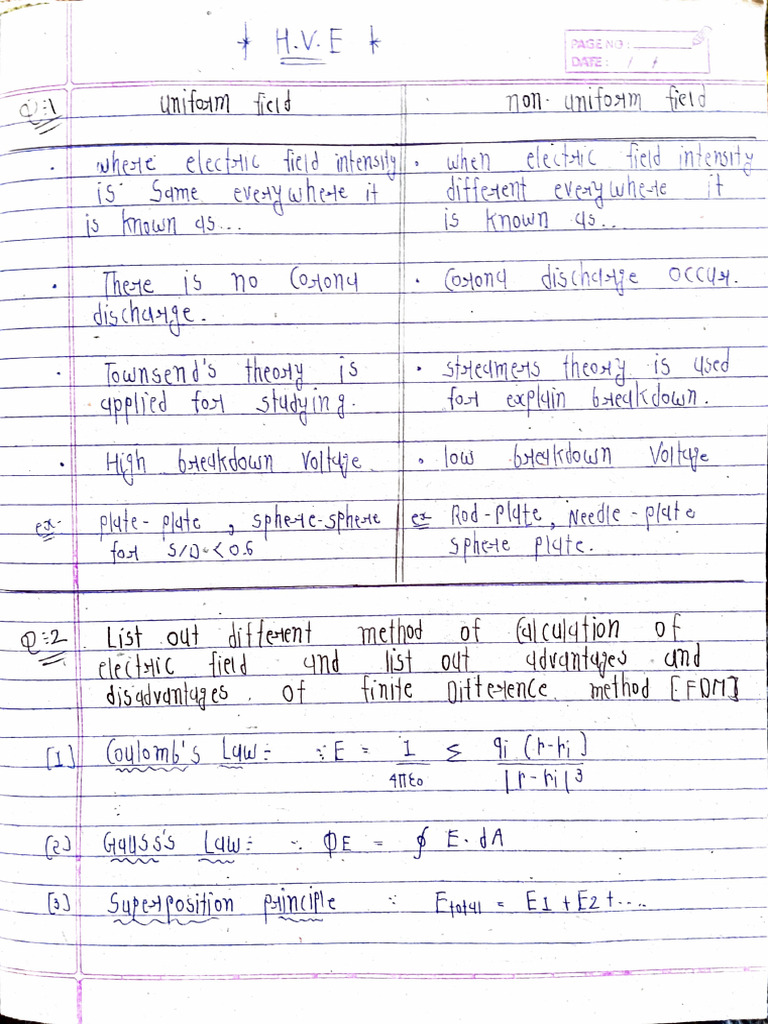 * H.V.E *
PAGE NO :
DATE : / /
Q:1 uniform field non-uniform field
. where electric field intensity . when electric field intensity
is same everywhere it different everywhere it
is known as... is known as...
. There is no Corona . Corona discharge occur.
discharge.
. Townsend's theory is . streamers theory is used
applied for studying. for explain breakdown.
. High breakdown voltage . low breakdown voltage
ex- plate-plate, sphere-sphere ex Rod-plate, Needle-plate
for S/D < 0.6 sphere plate.
Q:2 List out different method of calculation of
electric field and list out advantages and
disadvantages of finite Difference method [FDM]
[1] Coulomb's Law: ∵E = 1/4πε0 Σ qi (r-ri)/|r-ri|³
[2] Gauss's Law: ∵ ΦE = ∮ E.dA
[3] Superposition principle ∵ Etotal = E1 + E2 + ....